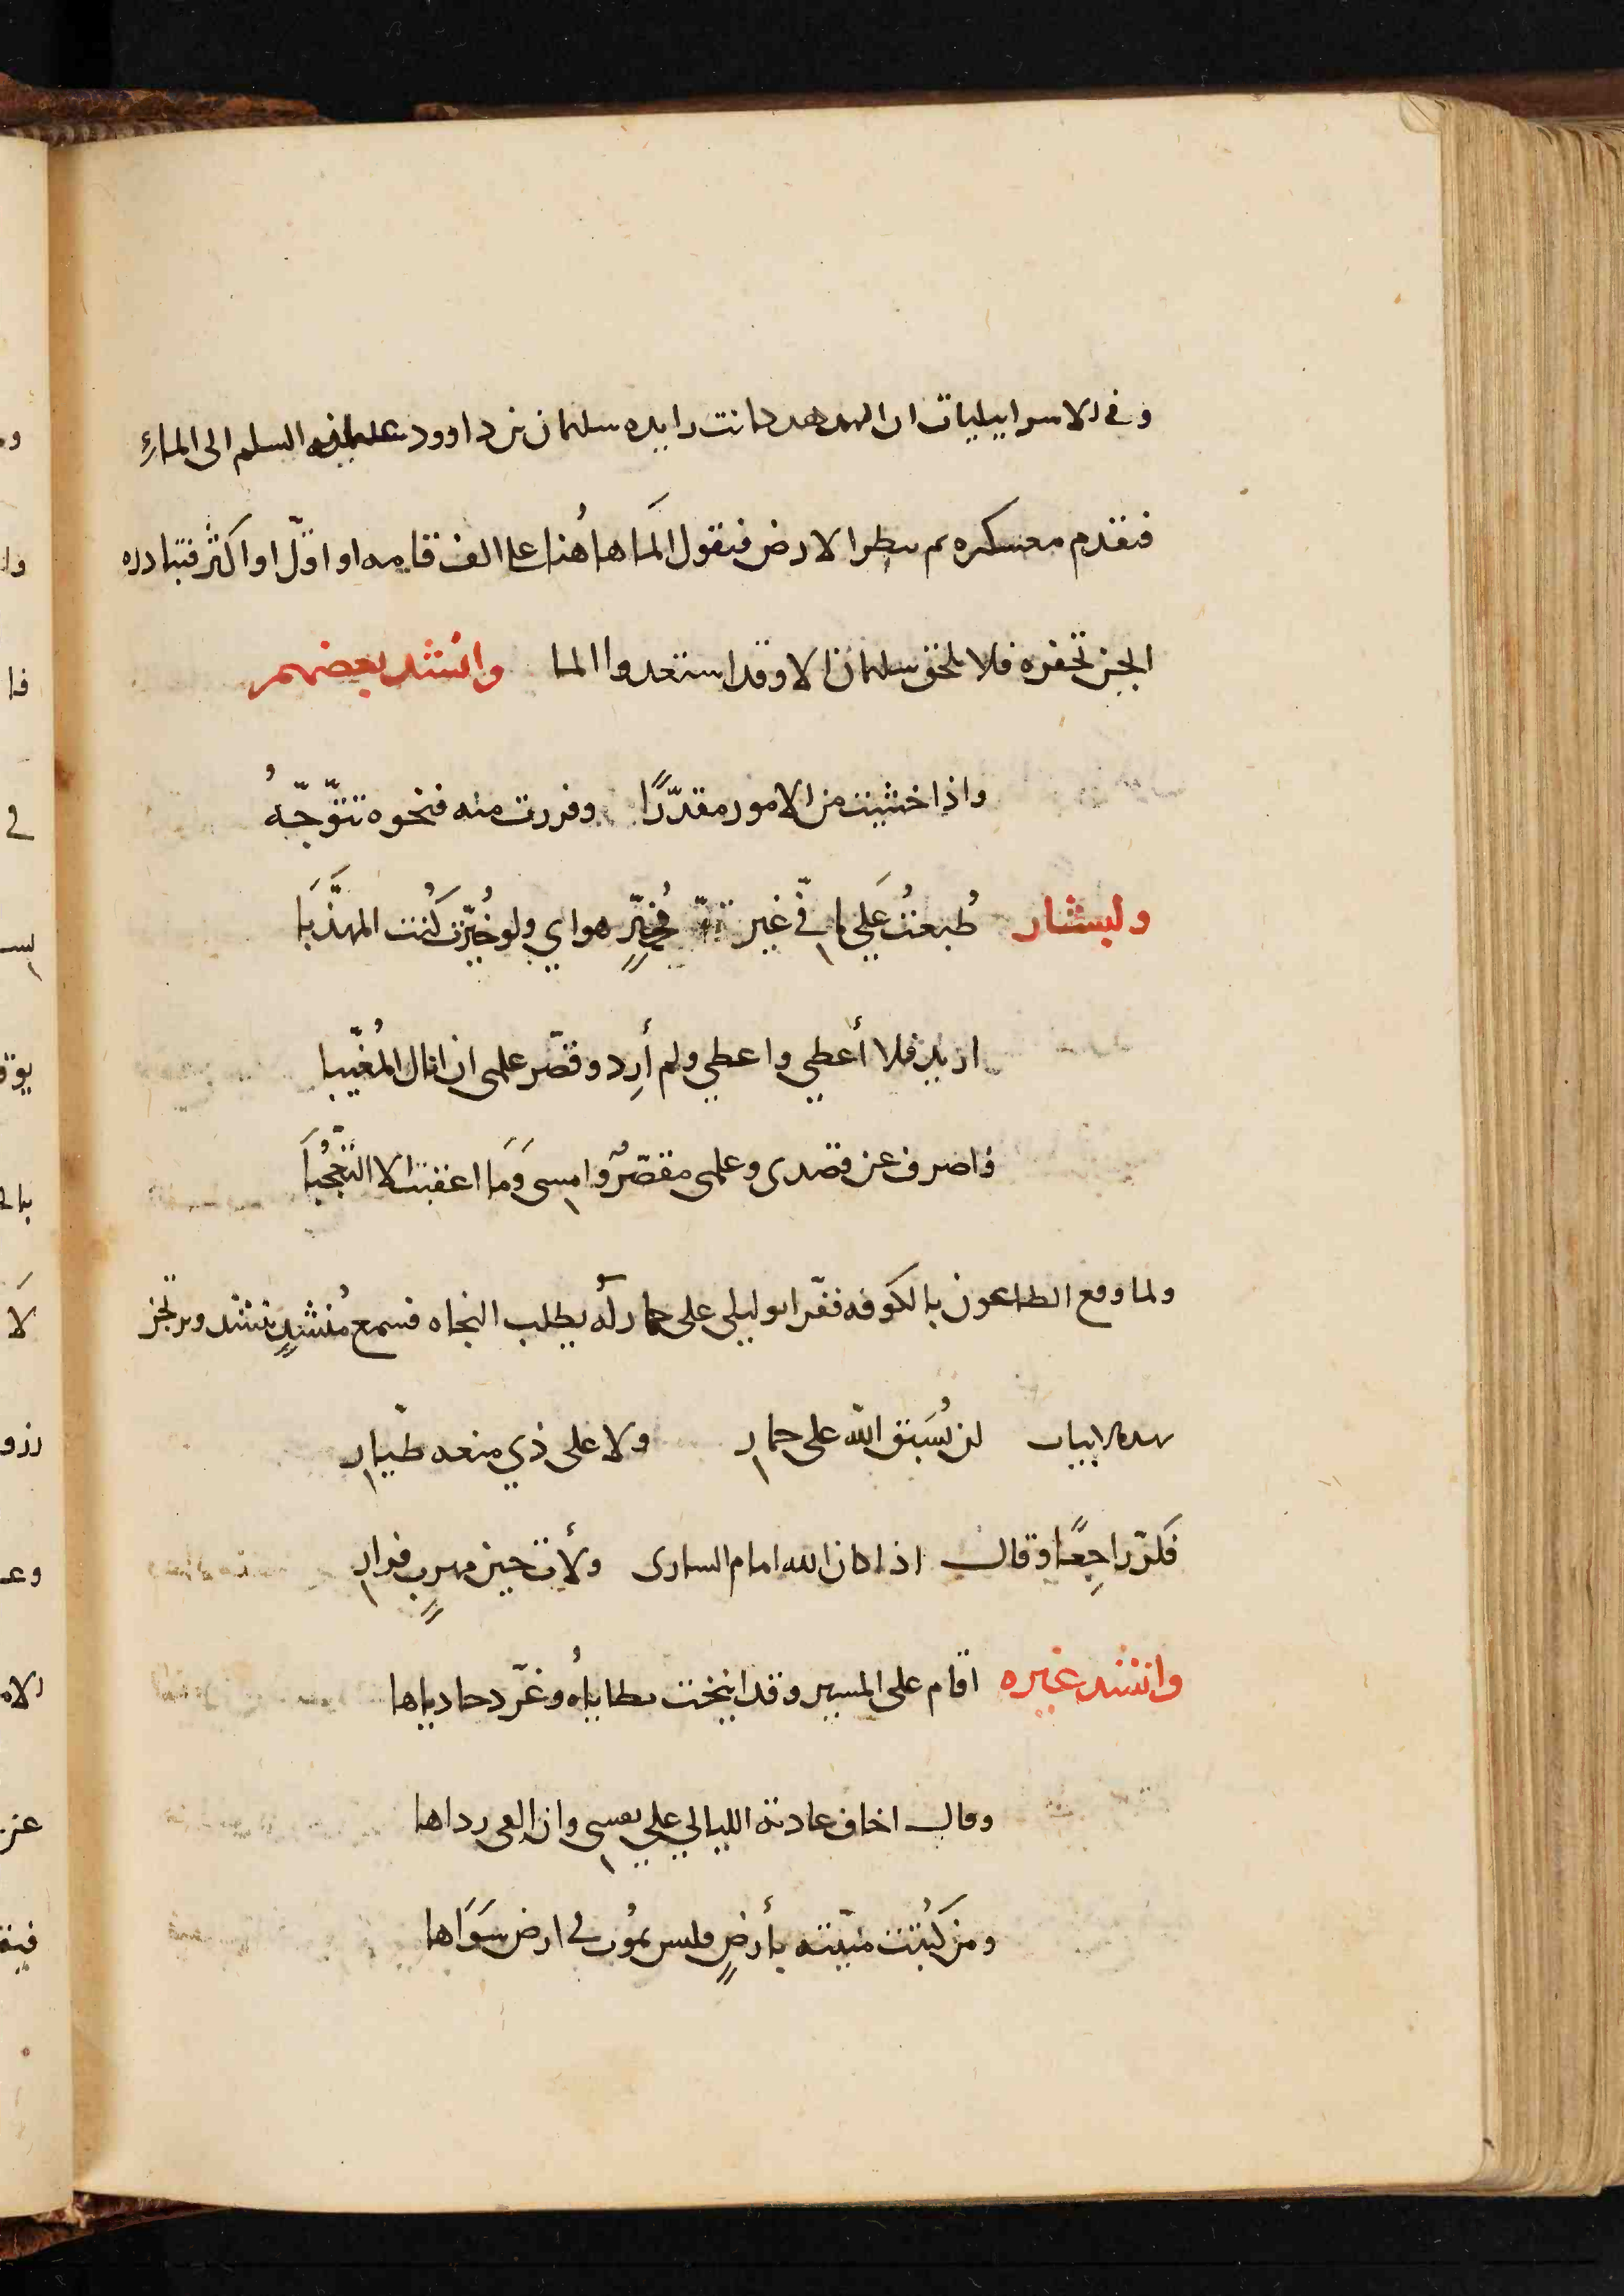 وفي الاسراييليات ان الهدهد كانت رايده سليمان بن داوود عليهما السلم الى الماءِ
فتقدم معسكره ثم ينظر الارض فتقول المَا هاهُنا على الف قامه او اقلّ او اكثر فتبادره
الجن تحفره فلا يلحق سليمان الا وقد استعدوا الما وانشد بعضهم
واذا خشيت من الامور مقدّرًا وفررت منه فنحوه تتوّجّهُ
ولبشار طُبعتُ عَلي ما فيّ غير مُخيّرٍ هواي ولو خُيّرت كُنت المهذَّبَا
اريد فلا أعطي واعطي ولم أرِد وقصّر علمى ان انال المُغيّبا
فاصرف عن قصدى وعلمى مقصّرٌ وامسى وَمَا اعقبت الا التّعجُّبَا
ولما وقع الطاعون بالكوفه ففرّ ابو ليلى على حمار لَه يطلب النجاه فسمع مُنشدٍ ينشد ويرتجز
بهده الابيات لن يُسَبق اللّه على حمار ولا على ذي منعه طيّار
فكرّ راجِعًا وقال اذا كان الله امام السارى ولأت حين مهربٍ فرار
وانشد غيره اقام على المسير وقد انيخت مطاياُه وغرّد حادياها
وقال اخاف عادية الليالي علي نفسى وان القى رداها
ومن كَتُبت منيّته بأرضٍ فليس يمُوت فى ارض سَوَاها